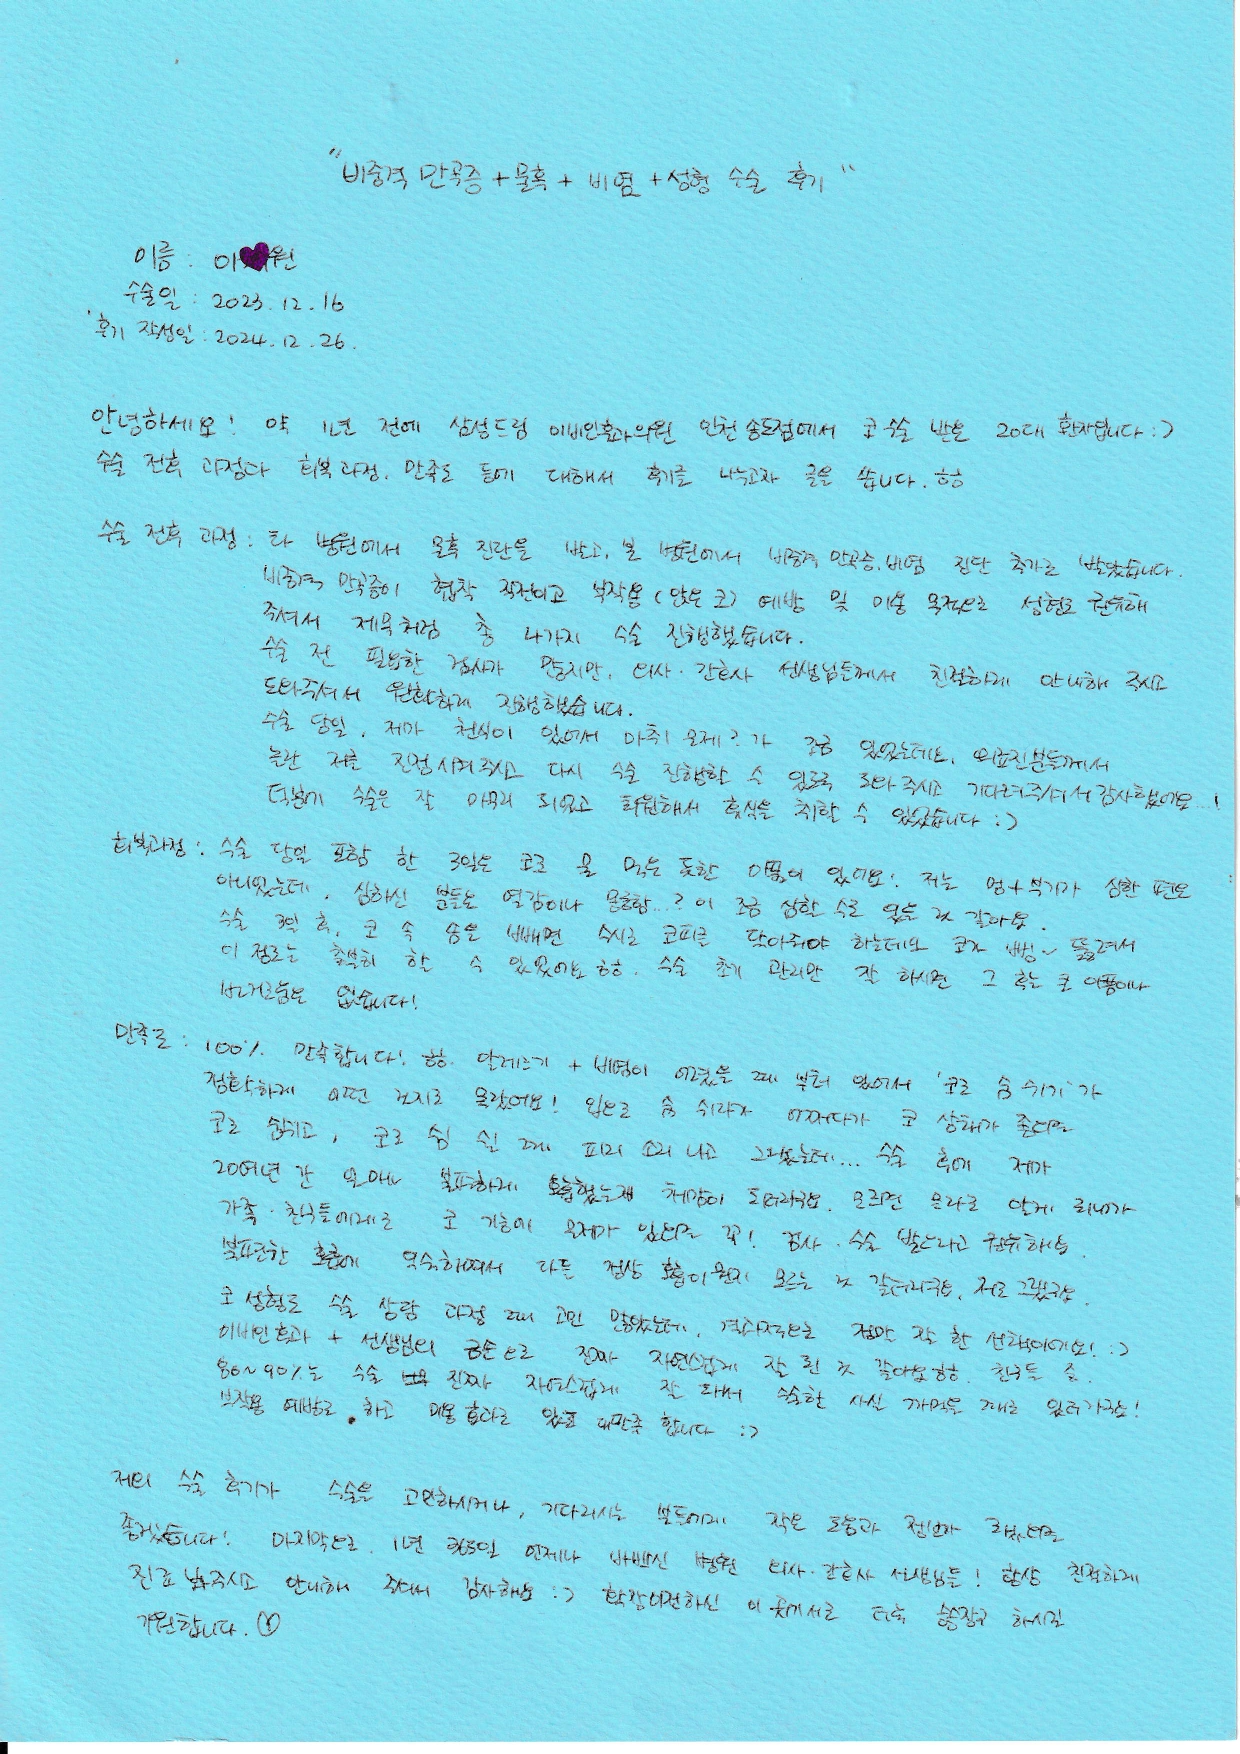 "비중격 만곡증 + 물혹 + 비염 + 성형 수술 후기"
이름 : 이 원
수술일 : 2023. 12. 16
후기 작성일 : 2024. 12. 26.
안녕하세요! 약 1년 전에 삼성드림 이비인후과의원 인천송도점에서 코 수술 받은 20대 환자입니다 :)
수술 전후 과정과 회복과정, 만족도 등에 대해서 후기를 나누고자 글을 씁니다. ㅎㅎ
수술 전후 과정 : 타 병원에서 물혹 진단을 받고, 본 병원에서 비중격 만곡증, 비염 진단 추가로 받았습니다.
비중격 만곡증이 협착 직전이고 부작용 (안장 코) 예방 및 미용 목적으로 성형도 권유해
주셔서 제목처럼 총 4가지 수술 진행했습니다.
수술 전 필요한 검사가 많지만, 의사·간호사 선생님들께서 친절하게 안내해 주시고
도와주셔서 원활하게 진행했습니다.
수술 당일, 제가 천식이 있어서 마취 문제?가 조금 있었는데요, 의료진분들께서
놀란 저를 진정시켜주시고 다시 수술 진행할 수 있도록 도와주시고 기다려주셔서 감사했어요...!
덕분에 수술은 잘 마무리 되었고 회원해서 휴식을 취할 수 있었습니다 :)
회복과정 : 수술 당일 포함 한 3일은 코로 물 먹은 듯한 아픔이 있어요! 저는 멍+부기가 심한 편은
아니었는데, 심하신 분들은 열감이나 몽롱함...? 이 조금 심할 수도 있을 것 같아요.
수술 3일 후, 코 속 솜을 빼면 수시로 코피를 닦아줘야 하는데요 코가 뻥~ 뚫려서
이 정도는 충분히 할 수 있었어요 ㅎㅎ. 수술 초기 관리만 잘 하시면 그 후는 큰 아픔이나
번거로움은 없습니다!
만족도 : 100% 만족합니다! ㅎㅎ. 알레르기 + 비염이 어렸을 때 부터 있어서 '코로 숨 쉬기'가
정확하게 어떤 건지도 몰랐어요! 입으로 숨 쉬다가 어쩌다가 코 상태가 좋으면
코로 숨쉬고, 코로 숨 쉴 때 피리 소리 나고 그랬는데... 수술 후에 제가
20여년 간 얼마나 불편하게 호흡했는지 체감이 되더라구요. 모르면 몰라도 알게 되니까
가족·친구들에게도 코 기능에 문제가 있으면 꼭! 검사·수술 받으라고 권유해요.
불편한 호흡에 익숙해져서 다들 정상 호흡이 뭔지 모르는 것 같더라구요, 저도 그랬구요.
코 성형도 수술 상담 과정 때 고민 많았는데, 결과적으로 정말 잘 한 선택이에요! :)
이비인후과 + 선생님의 금손으로 진짜 자연스럽게 잘 된 것 같아요 ㅎㅎ. 친구들 중
80~90%는 수술 진짜 자연스럽게 잘 돼서 수술한 사실 까먹을 때도 있더라구요!
부작용 예방도 하고 미용 효과도 있고 대만족 합니다 :)
저의 수술 후기가 수술을 고민하시거나, 기다리시는 분들에게 작은 도움과 정보가 되었으면
좋겠습니다! 마지막으로, 1년 365일 언제나 바쁘신 병원 의사·간호사 선생님들! 항상 친절하게
진료 봐주시고 안내해 주셔서 감사해요 :) 확장이전하신 이 곳에서도 더욱 승승장구 하시길
기원합니다.